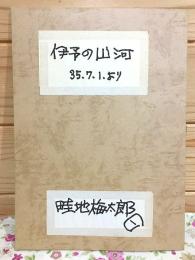 伊予の山河
35.7.1.より
畦地梅太郎